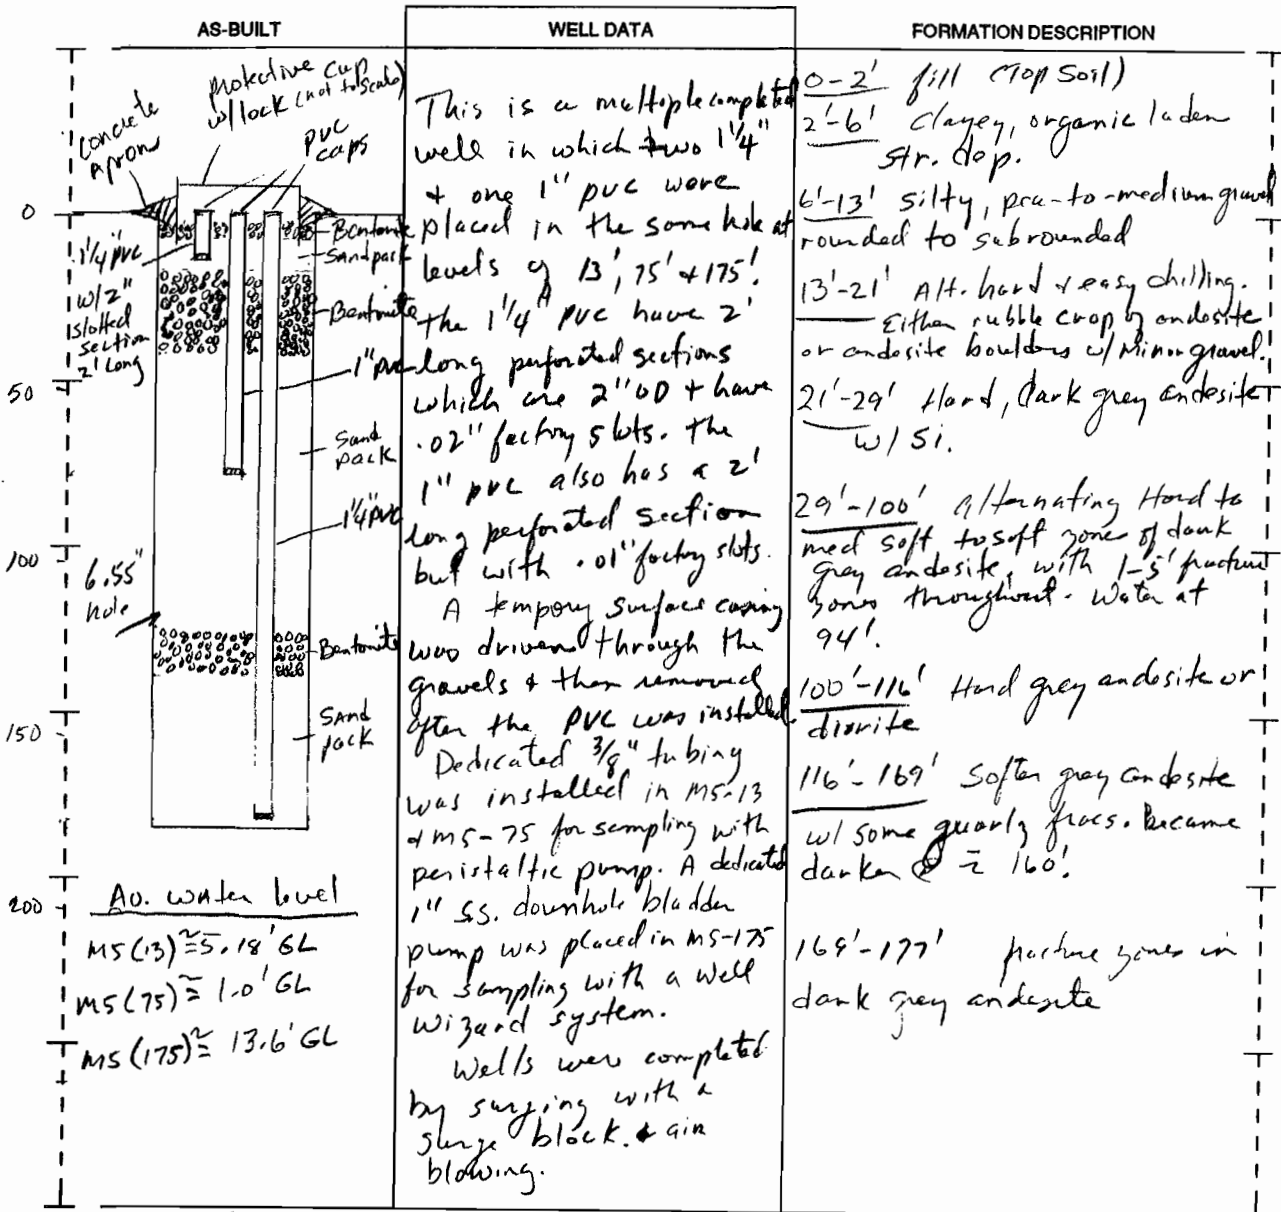 AS-BUILT
WELL DATA
FORMATION DESCRIPTION
protective cap
w/lock (not to scale)
concrete
apron
PVC
caps
0
50
100
150
200
1 1/4" PVC
w/ 2"
slotted
section
2' Long
Bentonite
Sandpack
Bentonite
1" PVC
Sand
pack
1 1/4" PVC
6.55"
hole
Bentonite
SANd
pack
Av. water level
MS(13) ≅ 5.18' GL
MS(75) ≅ 1.0' GL
MS(175) ≅ 13.6' GL
This is a multiple completed
well in which two 1 1/4"
& one 1" pvc were
placed in the same hole at
levels of 13', 75' & 175'.
the 1 1/4" PVC have 2'
long perforated sections
which are 2" OD & have
.02" factory slots. the
1" pvc also has a 2'
long perforated section
but with .01" factory slots.
A tempory surface casing
was driven through the
gravels & then removed
after the PVC was installed.
Dedicated 3/8" tubing
was installed in MS-13
& MS-75 for sampling with
peristaltic pump. A dedicated
1" S.S. downhole bladder
pump was placed in MS-175
for sampling with a Well
Wizard system.
Wells were completed
by surging with a
surge block & air
blowing.
0-2' fill (Top Soil)
2'-6' Clayey, organic laden
str. dep.
6'-13' Silty, pea-to-medium gravel
rounded to subrounded
13'-21' Alt. hard & easy drilling.
Either rubble crop of andesite
or andesite boulders w/ Minor gravel.
21'-29' Hard, dark grey andesite
w/ Si.
29'-100' Alternating Hard to
med soft to soft zones of dark
grey andesite, with 1-5' fracture
zones throughout. Water at
94'.
100'-116' Hard grey andesite or
diorite
116'-169' Softer grey andesite
w/ some quartz fracs. Became
darker @ ≈ 160'.
169'-177' fracture zones in
dark grey andesite